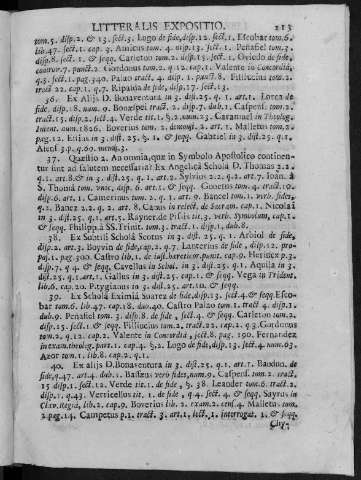 LITTERALIS EXPOSITIO. 213
tom.5. disp.2. & 13. sect.3. Lugo de fide, disp.12. sect.1. Escobar tom.6.
lib.47. sect.1. cap. 3. Amicus tom. 4. disp.13. sect.1. Peñafiel tom.3.
disp.8. sect.1. & seqq. Carleton tom.2. disp.15. sect.1. Oviedo de fide,
controv.7. punct.2. Gordonus tom.2. q.12. cap.1. Valente in Concordia,
q.5. sect.1. pag.340. Palao tract.4. disp.1. punct.8. Fillucius tom.2.
tract.22. cap.1. q.7. Ripalda de fide, disp.17. sect.13.
36. Ex Alijs D. Bonaventura in 3. dist.25. q.1. art.1. Lorca de
fide, disp.18. num.9. Bonæspei tract.2. disp.7. dub.1. Caspensf. tom.2.
tract.15. disp.2. sect.4. Verde tit.1. §.2. num.23. Caramuel in Theolog.
Intent. num.1826. Boverius tom.2. demonst.2. art.1. Malletus tom.2.
pag.12. in 3. dist.25. §.1. & seqq. Gabriel in 3. dist.25. q.1.
3.p.q.60. memb.3.
37. Quæstio 2. An omnia, quæ in Symbolo Apostolico continen-
tur sint ad salutem necessaria? Ex Angelica Scholâ D. Thomas 2.2.
q.1. art.8. & in 3. dist.25. q.1. art.2. Sylvius 2.2. q.2. art.7. Ioan. à
S. Thoma tom. vnic. disp.6. art.1. & seqq. Gonetus tom.4. tract.10.
disp.6. art.1. Camerarius tom.2. q.1. art.9. Bancel tom.1. verb. fides,
q.2. Bañez 2.2. q.2. art.8. de Sacram. cap.1. Nicolai
in 3. dist.25. q.1. art.5. Rayner. de Pisis tit.3. verb. Symbolum, cap.1.
& seqq. Philipp. à SS. Trinit. tom.3. tract. disp.1. dub.8.
38. Ex Subtili Scholâ Scotus in 3. dist.25. q.1. Arbiol de fide,
disp.2. art.3. Boyvin de fide, cap.2. q.7. Lanterius de fide, disp.12. pro-
pq.1. pag.300. Castro lib.1. de iust. hæreticor. punit. cap.9. Herinex p.3.
disp.7. q.4. & seqq. Cavellus in Schol. in 3. dist.25. q.1. Aquila in 3.
dist.25. q.1. art.1. Galles in 3. dist.25. cap.1. & seqq. Vega in Trident.
lib.6. cap.20. Pitygianus in 3. dist.25. art.10. & seqq.
39. Ex Scholâ Eximiâ Suarez de fide, disp.13. sect.4. & seqq. Esco-
bar tom.6. lib.47. cap.18. duo.40. Castro Palao tom.1. tract.4. disp.1.
dub.9. Peñafiel tom.3. disp.8. de fide, sect.4. & seqq. Carleton tom.2.
disp.15. sect.1. & seqq. Fillucius tom.2. tract.22. cap.1. q.3. Gordonus
tom.2. q.12. cap.2. Valente in Concordia, sect.8. pag.190. Fernandez
in exam. theolog. part.1. cap.4. §.2. Lugo de fide, disp.13. sect.4. num.63.
Azor tom.1. lib.8. cap.2. q.1.
40. Ex Alijs D. Bonaventura in 3. dist.25. q.1. art.1. Baudun. de
fide, q.47. art.4. dub.1. Bañeus verb. fides, num.9. Caspensf. tom.2. tract.
15. disp.1. sect.12. Verde tit.1. de fide, §.38. Leander tom.6. tract.2.
disp.1. q.43. Verricellus tit.1. de fide, q.4. sect.4. & seqq. Sayrus in
Clav. Regia, lib.2. cap.9. Boverius lib.2. exam.2. cens.4. Malletus tom.
2. pag.14. Campetus p.1. tract.3. art.1. sect.1. interrogat. 1. & seqq.